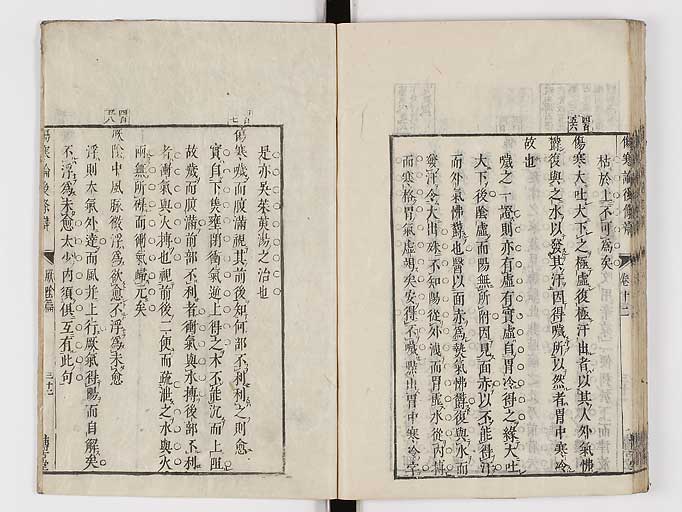 傷寒論後條辨
卷十二
枯於上不可為矣
四百五六
傷寒大吐大下之極虛復極汗出者以其人外氣怫
鬱復與之水以發其汗因得噦所以然者胃中寒冷
故也
噦之一證則亦有虛有實虛自胃冷得之緣大吐
大下後陰虛而陽無所附因見面赤以不能得汗
而外氣怫鬱也醫以面赤為熱氣怫鬱復與水而
發汗令大出殊不知陽從外洩而胃虛水從內搏
而寒格胃氣虛竭矣安得不噦點出胃中寒冷字
是亦吳茱萸湯之治也
傷寒噦而腹滿視其前後知何部不利利之則愈
實自下奂壅閉衝氣迎上得之木不能沉而上阻
故噦而腹滿前部不利者衝氣與水搏後部不利
者衝氣與火搏也視前後二便而疏泄之水與火
兩無所礙而衝氣歸元矣
四百五八
厥陰中風脉微浮為欲愈不浮為未愈
浮則木氣外達而風并上行厥氣得陽而自解矣
不浮為未愈太少內須俱互有此句
傷寒論後條辨
厥陰篇
三十二